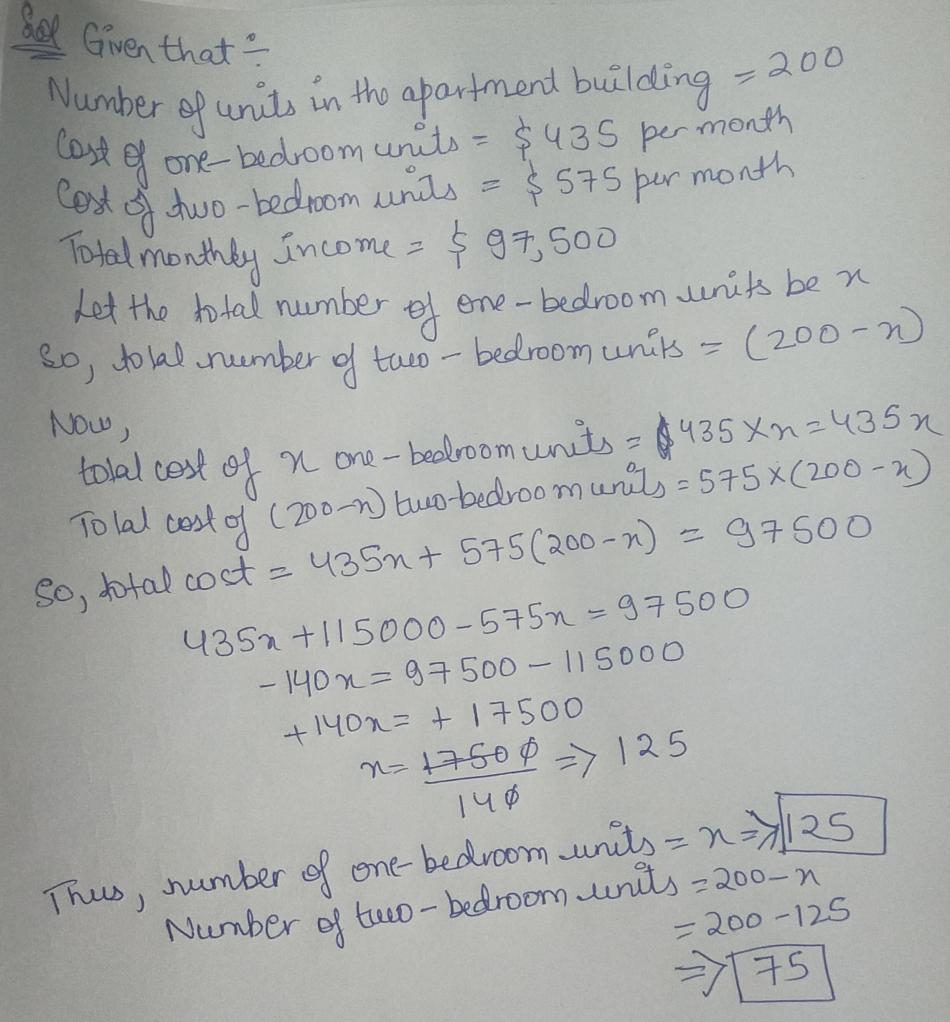 Sol Given that :-
Number of units in the apartment building = 200
Cost of one-bedroom units = $435 per month
Cost of two-bedroom units = $575 per month
Total monthly income = $97,500
Let the total number of one-bedroom units be x
So, total number of two-bedroom units = (200-x)
Now,
total cost of x one-bedroom units = $435 × x = 435x
Total cost of (200-x) two-bedroom units = 575 × (200-x)
So, total cost = 435x + 575(200-x) = 97500
435x + 115000 - 575x = 97500
-140x = 97500 - 115000
+140x = + 17500
x = 17500 => 125
140
Thus, number of one-bedroom units = x => 125
Number of two-bedroom units = 200-x
= 200-125
=> 75